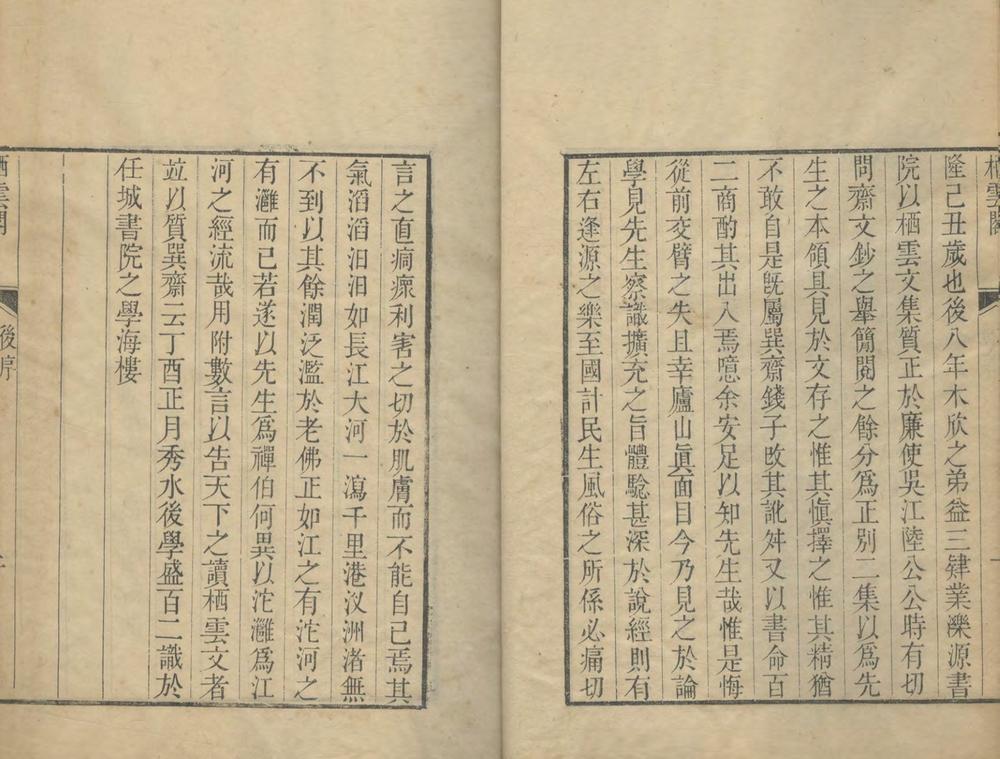 栖雲閣
隆己丑歲也後八年木欣之弟益三肄業濼源書
院以栖雲文集質正於廉使吳江陸公公時有切
問齋文鈔之舉簡閱之餘分為正別二集以為先
生之本領具見於文存之惟其愼擇之惟其精猶
不敢自是旣屬巽齋錢子攺其訛舛又以書命百
二商酌其出入焉噫余安足以知先生哉惟是悔
從前交臂之失且幸廬山眞面目今乃見之於論
學見先生察識擴充之旨體騐甚深於說經則有
左右逢源之樂至國計民生風俗之所係必痛切
言之直痌瘝利害之切於肌膚而不能自已焉其
氣滔滔汩汩如長江大河一瀉千里港汊洲渚無
不到以其餘潤泛濫於老佛正如江之有沱河之
有灉而已若遂以先生爲禪伯何異以沱灉爲江
河之經流哉用附數言以告天下之讀栖雲文者
竝以質巽齋云丁酉正月秀水後學盛百二識於
任城書院之學海樓
栖雲閣
後序